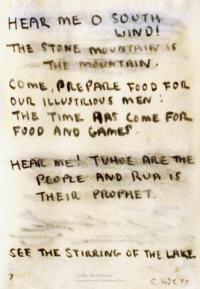 HEAR ME O SOUTH
WIND!
THE STONE MOUNTAIN IS
THE MOUNTAIN.
COME, PREPARE FOOD FOR
OUR ILLUSTRIOUS MEN:
THE TIME HAS COME FOR
FOOD AND GAMES.
HEAR ME! TUHOE ARE THE
PEOPLE AND RUA IS
THEIR PROPHET.
SEE THE STIRRING OF THE LAKE
7